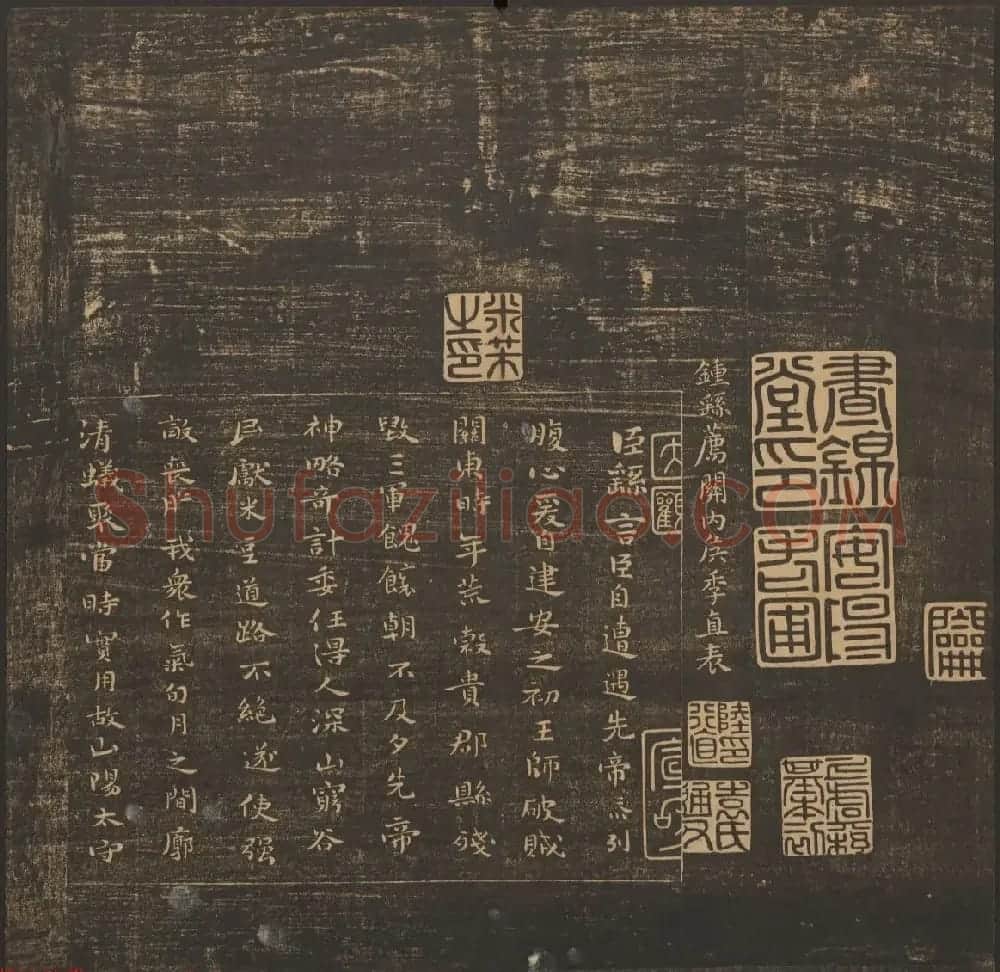 鍾繇薦關內侯季直表
米芾之印
大觀
臣繇言臣自遭遇先帝忝列
腹心爰自建安之初王師破賊
關東時年荒穀貴郡縣殘
毀三軍餽饟朝不及夕先帝
神略奇計委任得人深山窮谷
民獻米豆道路不絕遂使強
敵喪膽我衆作氣旬月之間廓
清蟻聚當時實用故山陽太守
Shufaziliao.COM